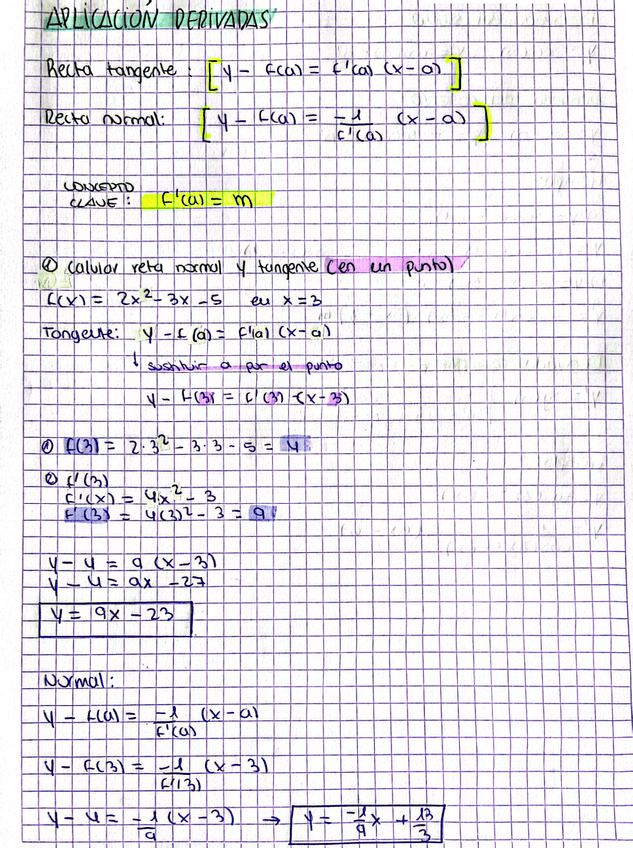 APLICACIÓN DERIVADAS
Recta tangente: [y - f(a) = f'(a) (x-a)]
Recta normal: [y - f(a) = -1/f'(a) (x-a)]
CONCEPTO
CLAVE: f'(a) = m
① Calular reta normal y tangente (en un punto)
f(x) = 2x² - 3x - 5 en x = 3
Tangente: y - f(a) = f'(a) (x-a)
↓ sustituir a por el punto
y - f(3) = f'(3) · (x-3)
① f(3) = 2·3² - 3·3 - 5 = 4
② f'(3)
f'(x) = 4x² - 3
f'(3) = 4(3)² - 3 = 9
y - 4 = 9 (x-3)
y - 4 = 9x - 27
y = 9x - 23
Normal:
y - f(a) = -1/f'(a) (x-a)
y - f(3) = -1/f'(3) (x-3)
y - 4 = -1/9 (x-3) → y = -1/9 x + 13/3